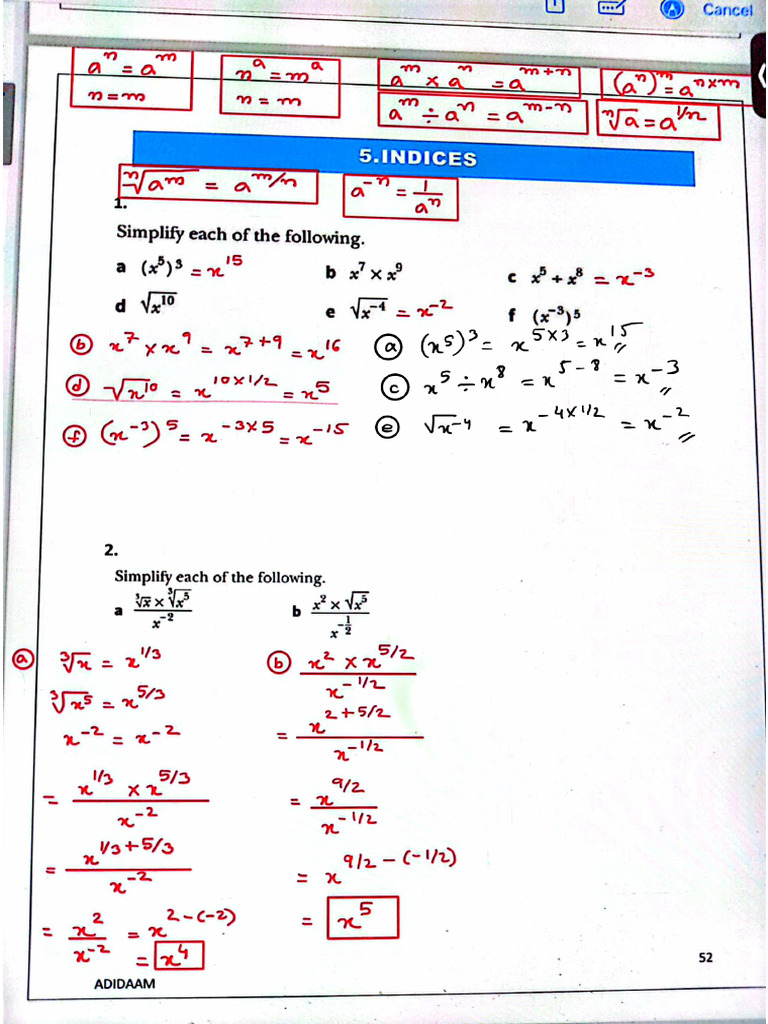 Cancel
aⁿ = aᵐ
n = m
nᵃ = mᵃ
n = m
aᵐ × aⁿ = aᵐ⁺ⁿ
aᵐ ÷ aⁿ = aᵐ⁻ⁿ
(aⁿ)ᵐ = aⁿˣᵐ
ⁿ√a = a^1/n
5.INDICES
ⁿ√aᵐ = a^m/n
a⁻ⁿ = 1/aⁿ
1.
Simplify each of the following.
a (x⁵)³ = x¹⁵ b x⁷ × x⁹ c x⁵ ÷ x⁸ = x⁻³
d √x¹⁰ e √x⁻⁴ = x⁻² f (x⁻³)⁵
ⓑ x⁷ × x⁹ = x⁷⁺⁹ = x¹⁶ ⓐ (x⁵)³ = x^5×3 = x¹⁵
ⓓ √x¹⁰ = x^10×1/2 = x⁵ ⓒ x⁵ ÷ x⁸ = x⁵⁻⁸ = x⁻³
ⓕ (x⁻³)⁵ = x^-3×5 = x⁻¹⁵ ⓔ √x⁻⁴ = x^-4×1/2 = x⁻²
2.
Simplify each of the following.
a (³√x × ³√x⁵)/x⁻² b (x² × √x⁵)/x^-1/2
ⓐ ³√x = x^1/3
³√x⁵ = x^5/3
x⁻² = x⁻²
= (x^1/3 × x^5/3)/x⁻²
= x^1/3+5/3/x⁻²
= x²/x⁻² = x^2-(-2)
= x⁴
ⓑ (x² × x^5/2)/x^-1/2
= x^2+5/2/x^-1/2
= x^9/2/x^-1/2
= x^9/2-(-1/2)
= x⁵
52
ADIDAAM